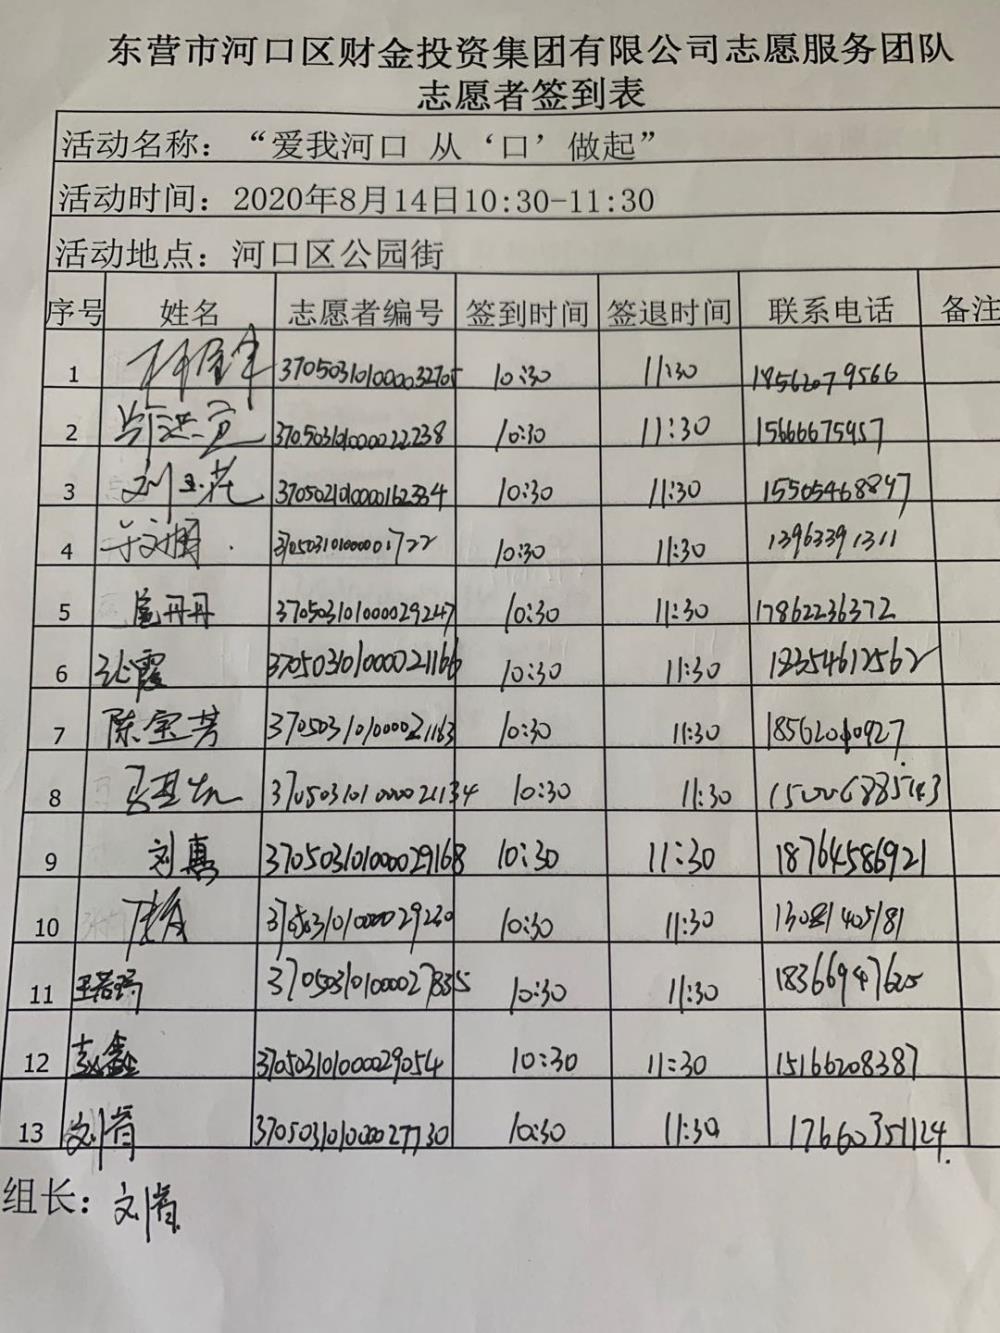 东营市河口区财金投资集团有限公司志愿服务团队
志愿者签到表
活动名称：“爱我河口 从‘口’做起”
活动时间：2020年8月14日10:30-11:30
活动地点：河口区公园街
序号 姓名 志愿者编号 签到时间 签退时间 联系电话 备注
1 3705031010000032705 10:30 11:30 18562079566
2 370503101000022238 10:30 11:30 15666675957
3 刘玉花 370502101000162334 10:30 11:30 15505468897
4 10:30 11:30 13963391311
5 扈丹丹 370503101000029247 10:30 11:30 17862236372
6 张霞 370503101000021166 10:30 11:30 18354612562
7 陈宝芳 370503101000021163 10:30 11:30
8 370503101000021134 10:30 11:30 150006885743
9 刘真 370503101000029168 10:30 11:30 18764586921
10 10:30 11:30
11 王若琦 370503101000027835 10:30 11:30 18366947625
12 赵鑫 370503101000029054 10:30 11:30 15166208387
13 刘肖 370503101000027730 10:30 11:30 17660351124
组长：刘肖